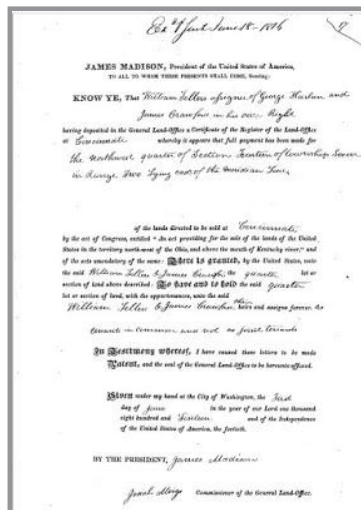 Ex'd June 18 - 1816
JAMES MADISON, President of the United States of America,
TO ALL TO WHOM THESE PRESENTS SHALL COME, Greeting:
KNOW YE, That William Sellers assignee of George Harlan and
James Crawford in his own Right
having deposited in the General Land-Office a Certificate of the Register of the Land-Office
at Cincinnati whereby it appears that full payment has been made for
the Northwest quarter of Section of township Seven
in Range Two lying east of the Meridian Line,
of the lands directed to be sold at Cincinnati
by the act of Congress, entitled “An act providing for the sale of the lands of the United
States in the territory north-west of the Ohio, and above the mouth of Kentucky river,” and
of the acts amendatory of the same: There is granted, by the United States, unto
the said William Sellers & James Crawford the quarter lot or
section of land above described: To have and to hold the said quarter
lot or section of land, with the appurtenances, unto the said
William Sellers & James Crawford their heirs and assigns forever. As
tenants in common and not as joint tenants
In Testimony whereof, I have caused these letters to be made
Patent, and the seal of the General Land-Office to be hereunto affixed.
Given under my hand at the City of Washington, the
day of June in the year of our Lord one thousand
eight hundred and Sixteen and of the Independence
of the United States of America, the fortieth.
BY THE PRESIDENT, James Madison
Josiah Meigs Commissioner of the General Land-Office.